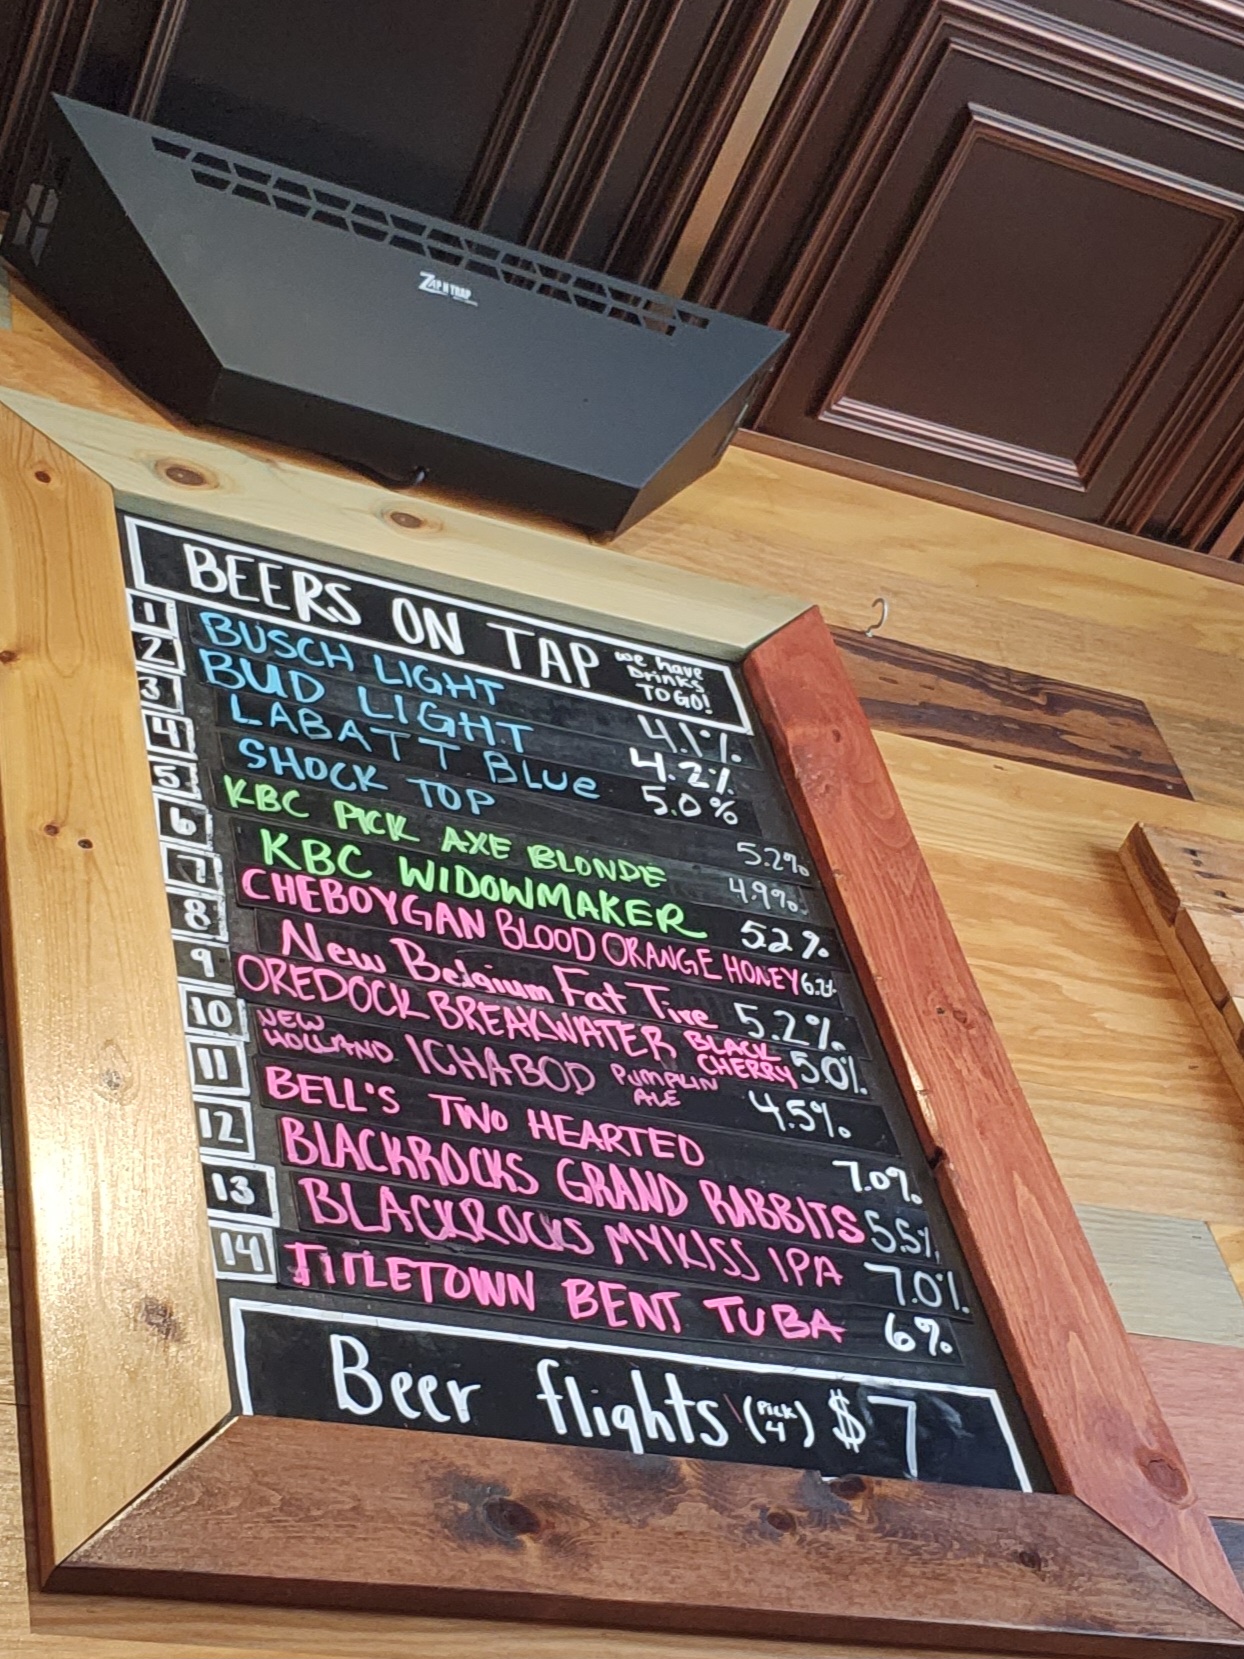 ZAP N TRAP
BEERS ON TAP
we have
DRiNKS
TO GO!
1 BUSCH LIGHT 4.1%
2 BUD LIGHT 4.2%
3 LABATT BLUe 5.0%
4 SHOCK TOP 5.2%
5 KBC PICK AXE BLONDE 4.9%
6 KBC WIDOWMAKER 5.2%
7 CHEBOYGAN BLOOD ORANGE HONEY
8 New Belgium Fat Tire 5.2%
9 OREDOCK BREAKWATER BLACK CHERRY 5.0%
10 NEW HOLLAND ICHABOD PUMPLIN ALE 4.5%
11 BELL'S TWO HEARTED 7.0%
12 BLACKROCKS GRAND RABBITS 5.5%
13 BLACKROCKS MYKISS IPA 7.0%
14 TITLETOWN BENT TUBA 6%
Beer flights (Pick 4) $7